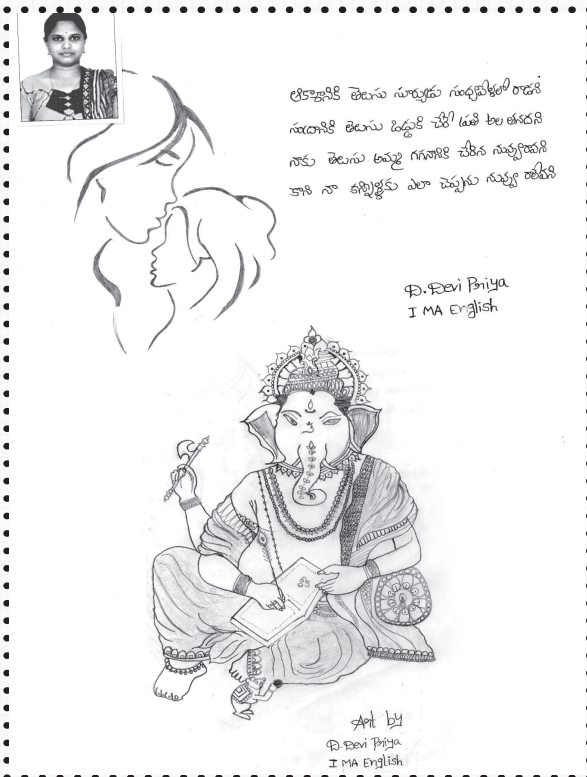 ఆకాశానికి తెలుసు సూర్యుడు సంధ్యవేళలో రాడని
సంద్రానికి తెలుసు ఒడ్డుకి చేరే ప్రతి అల తనదని
నాకు తెలుసు అమ్మ గగనానికి చేరిన నువ్వురావని
కాని నా కన్నీళ్ళకు ఎలా చెప్పును నువ్వు రాలేవని
D. Devi Priya
I MA English
Art by
D. Devi Priya
I MA English